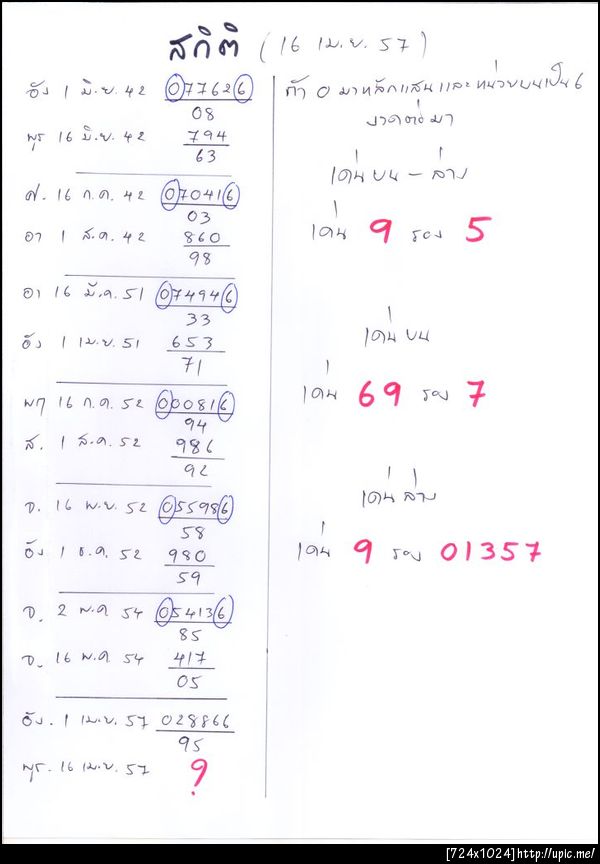 สถิติ (16 เม.ย. 57)
อัง 1 มิ.ย. 42 077626
08
พุธ 16 มิ.ย. 42 794
63
ศ. 16 ก.ค. 42 070416
03
อา 1 ส.ค. 42 860
98
อา 16 มี.ค. 51 074946
33
อัง 1 เม.ย. 51 653
71
พฤ 16 ก.ค. 52 000816
94
ส. 1 ส.ค. 52 986
92
จ. 16 พ.ย. 52 055986
58
อัง 1 ธ.ค. 52 980
59
จ. 2 พ.ค 54 054136
85
จ. 16 พ.ค 54 417
05
อัง. 1 เม.ย. 57 028866
95
พุธ. 16 เม.ย. 57 ?
ถ้า 0 มาหลักแสนและหน่วยบนเป็น 6
งวดต่อมา
เด่นบน - ล่าง
เด่น 9 รอง 5
เด่นบน
เด่น 69 รอง 7
เด่นล่าง
เด่น 9 รอง 01357
[724x1024]http://upic.me/